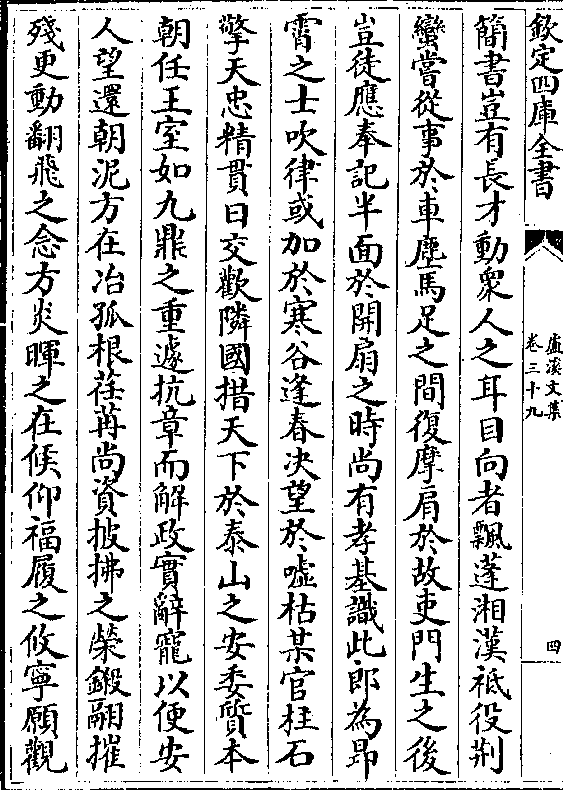 欽定四庫全書
盧溪文集
卷三十九
四
簡書豈有長才動衆人之耳目向者飄蓬湘漢祗役荆
蠻嘗從事於車塵馬足之間復摩肩於故吏門生之後
豈徒應奉記半面於開扇之時尚有孝基識此郎為昻
霄之士吹律或加於寒谷逢春決望於噓枯某官柱石
擎天忠精貫日交歡隣國措天下於泰山之安委質本
朝任王室如九鼎之重遽抗章而解政實辭寵以便安
人望還朝泥方在冶孤根荏苒尚資披拂之榮鎩翮摧
殘更動翻飛之念方炎暉之在候仰福履之攸寧願觀